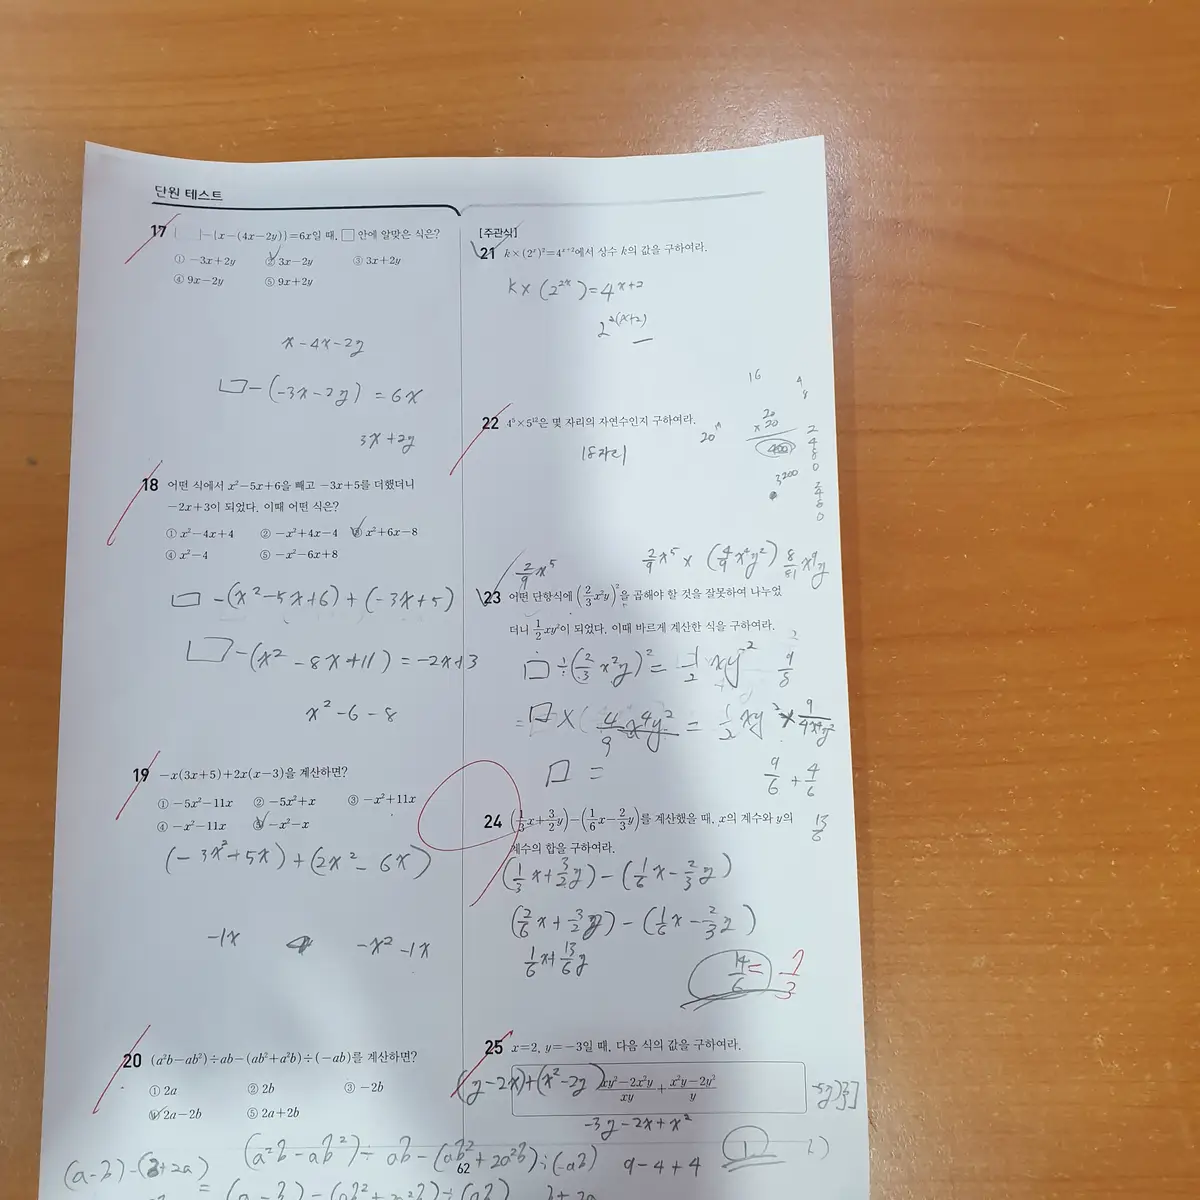 단원 테스트
17 □-{x-(4x-2y)}=6x일 때, □ 안에 알맞은 식은?
① -3x+2y ② 3x-2y ③ 3x+2y
④ 9x-2y ⑤ 9x+2y
x-4x-2y
□-(-3x-2y)=6x
3x+2y
18 어떤 식에서 x²-5x+6을 빼고 -3x+5를 더했더니
-2x+3이 되었다. 이때 어떤 식은?
① x²-4x+4 ② -x²+4x-4 ③ x²+6x-8
④ x²-4 ⑤ -x²-6x+8
□-(x²-5x+6)+(-3x+5)
□-(x²-8x+11)=-2x+3
x²-6-8
19 -x(3x+5)+2x(x-3)을 계산하면?
① -5x²-11x ② -5x²+x ③ -x²+11x
④ -x²-11x ⑤ -x²-x
(-3x²+5x)+(2x²-6x)
-1x -x²-1x
20 (a²b-ab²)÷ab-(ab²+a²b)÷(-ab)를 계산하면?
① 2a ② 2b ③ -2b
④ 2a-2b ⑤ 2a+2b
(a²b-ab²)÷ab-(ab²+2a²b)÷(-ab)
(a-b)-(b+2a)
[주관식]
21 k×(2ˣ)²=4ˣ⁺²에서 상수 k의 값을 구하여라.
k×(2²ˣ)=4ˣ⁺²
2²⁽ˣ⁺²⁾
16
22 4⁵×5¹²은 몇 자리의 자연수인지 구하여라.
18자리
20
×20
400
3200
2/9x⁵
2/9x⁵×(4/9x⁴y²) 8/81x⁹y
23 어떤 단항식에 (2/3x²y)²을 곱해야 할 것을 잘못하여 나누었
더니 1/2xy²이 되었다. 이때 바르게 계산한 식을 구하여라.
□÷(2/3x²y)²=1/2xy² 9/8
=□×4/9x⁴y²=1/2xy²×9/4x⁴y²
□=
9/6+4/6
13/6
24 (1/3x+3/2y)-(1/6x-2/3y)를 계산했을 때, x의 계수와 y의
계수의 합을 구하여라.
(1/3x+3/2y)-(1/6x-2/3y)
(2/6x+3/2y)-(1/6x-2/3y)
1/6x+13/6y
14/6=7/3
25 x=2, y=-3일 때, 다음 식의 값을 구하여라.
(y-2x)+(x²-2y)
(xy²-2x²y)/xy+(x²y-2y²)/y
-3y-2x+x²
9-4+4 1
62